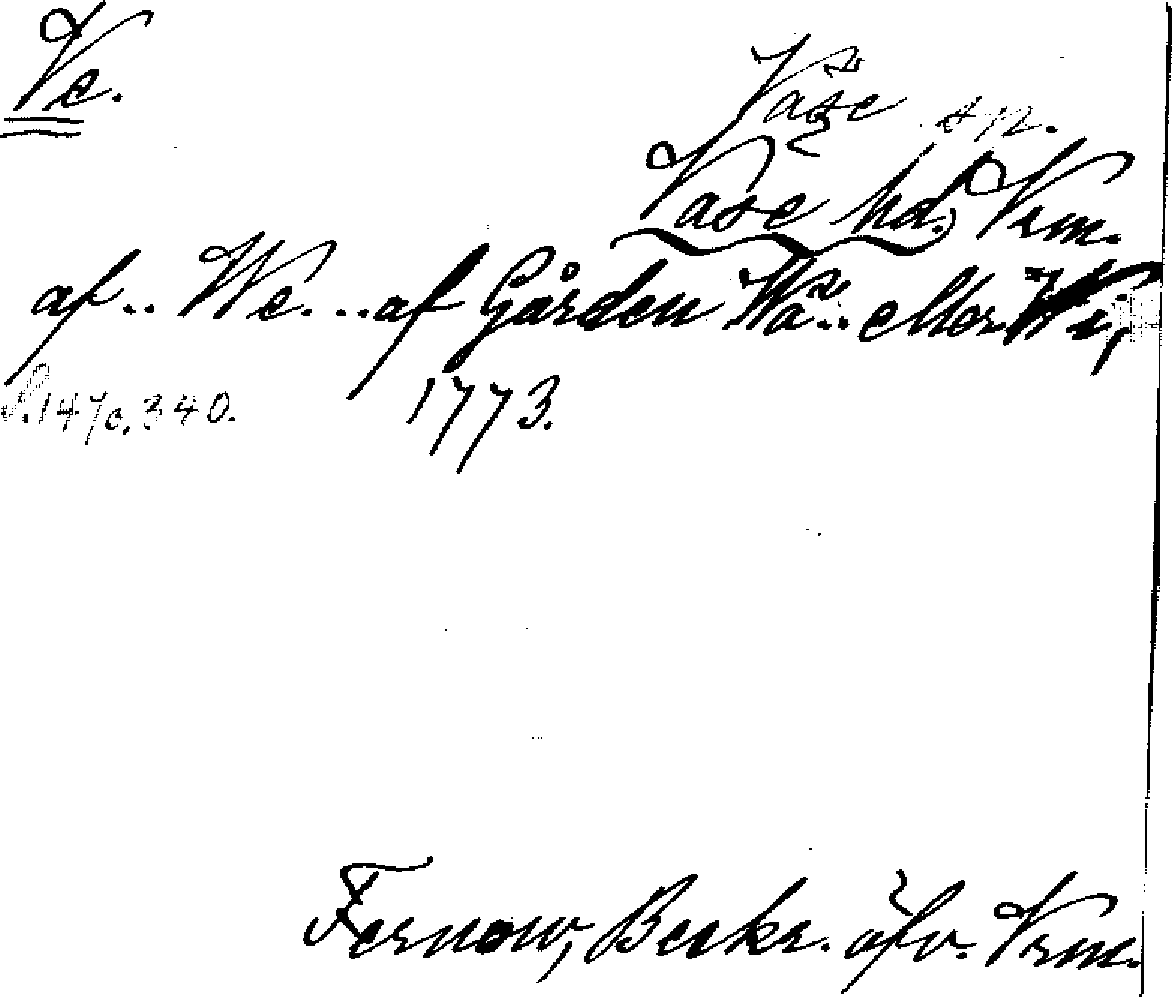 Ve.
Väse sn.
Väse hd. Vrm.
af.. We...af Gården Wä.. eller We,
S.147c,340. 1773.
Fernow, Beskr. öfv. Vrm.